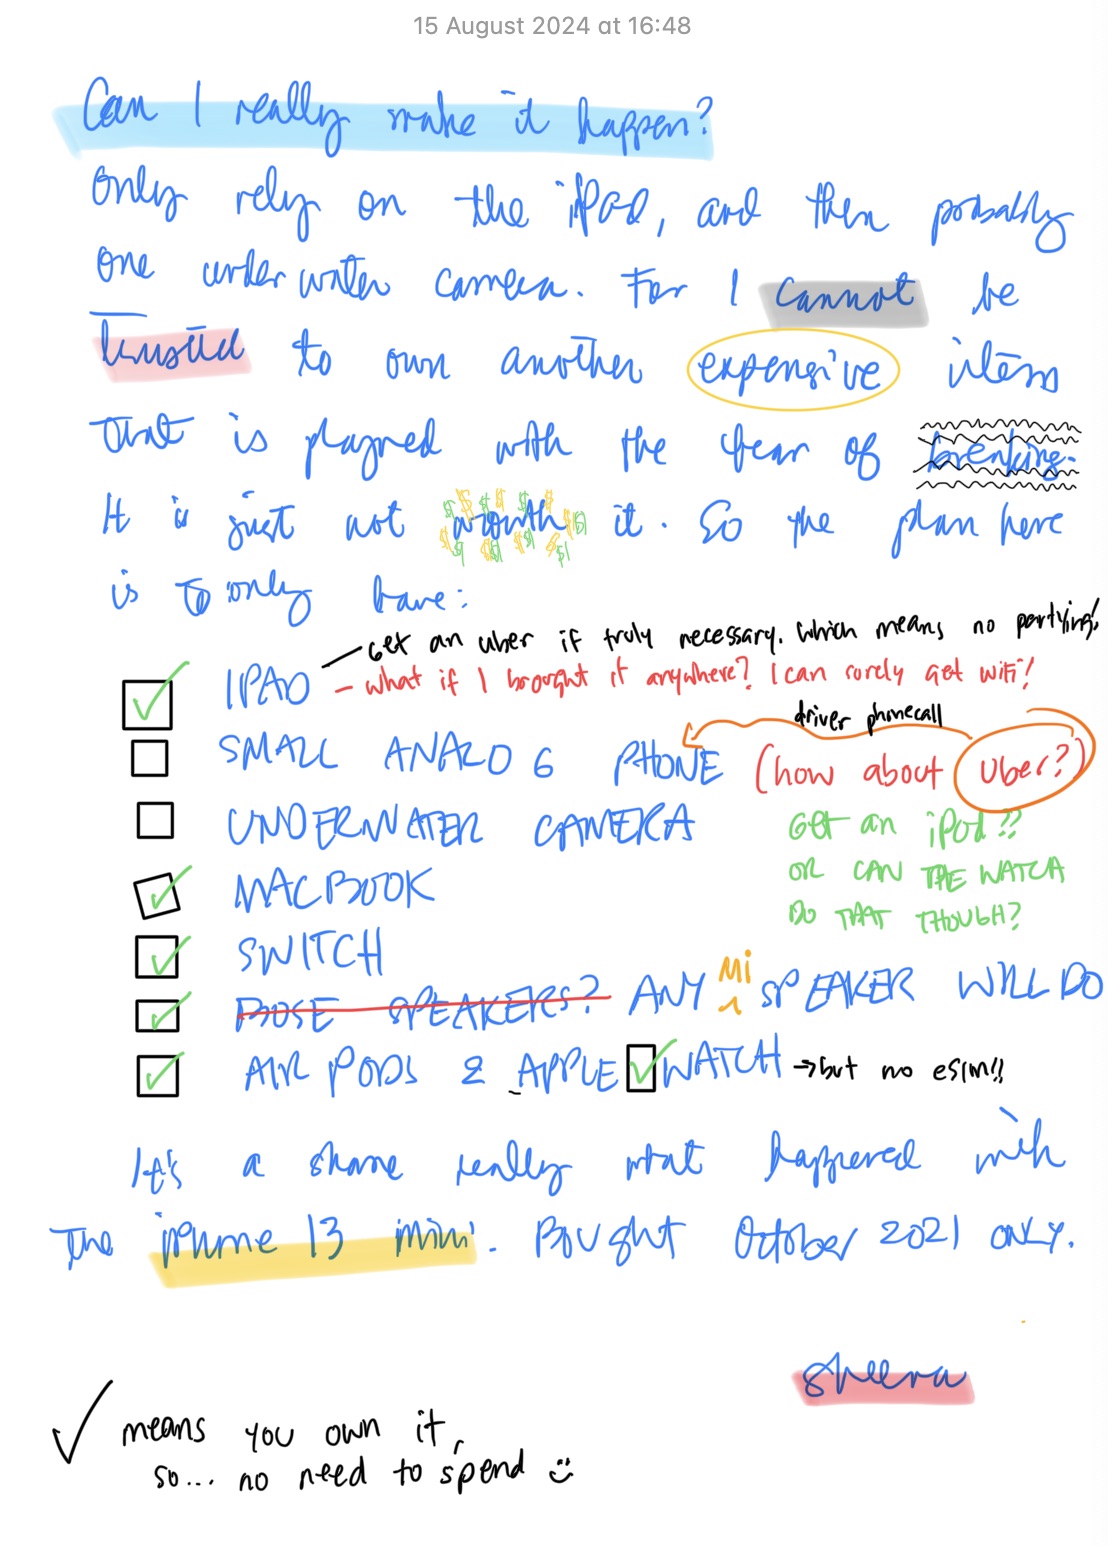 15 August 2024 at 16:48
Can I really make it happen?
Only rely on the iPad, and then probably
one underwater camera. For I cannot be
trusted to own another expensive item
that is plagued with the fear of breaking.
It is just not worth it. So the plan here
is to only have:
get an uber if truly necessary. Which means no partying!
IPAD
- what if I brought it anywhere? I can surely get wifi!
driver phonecall
SMALL ANALOG PHONE (how about Uber?)
UNDERWATER CAMERA
GET an iPod??
OR CAN THE WATCH
DO THAT THOUGH?
MACBOOK
SWITCH
BOSE SPEAKERS? ANY Mi SPEAKER WILL DO
AIRPODS & APPLE WATCH → but no esim!!
It's a shame really what happened with
The iPhone 13 mini. Bought October 2021 ONLY.
sheera
means you own it,
so... no need to spend
$ $ $ $ $ $ $ $ $ $ $ $ $ $